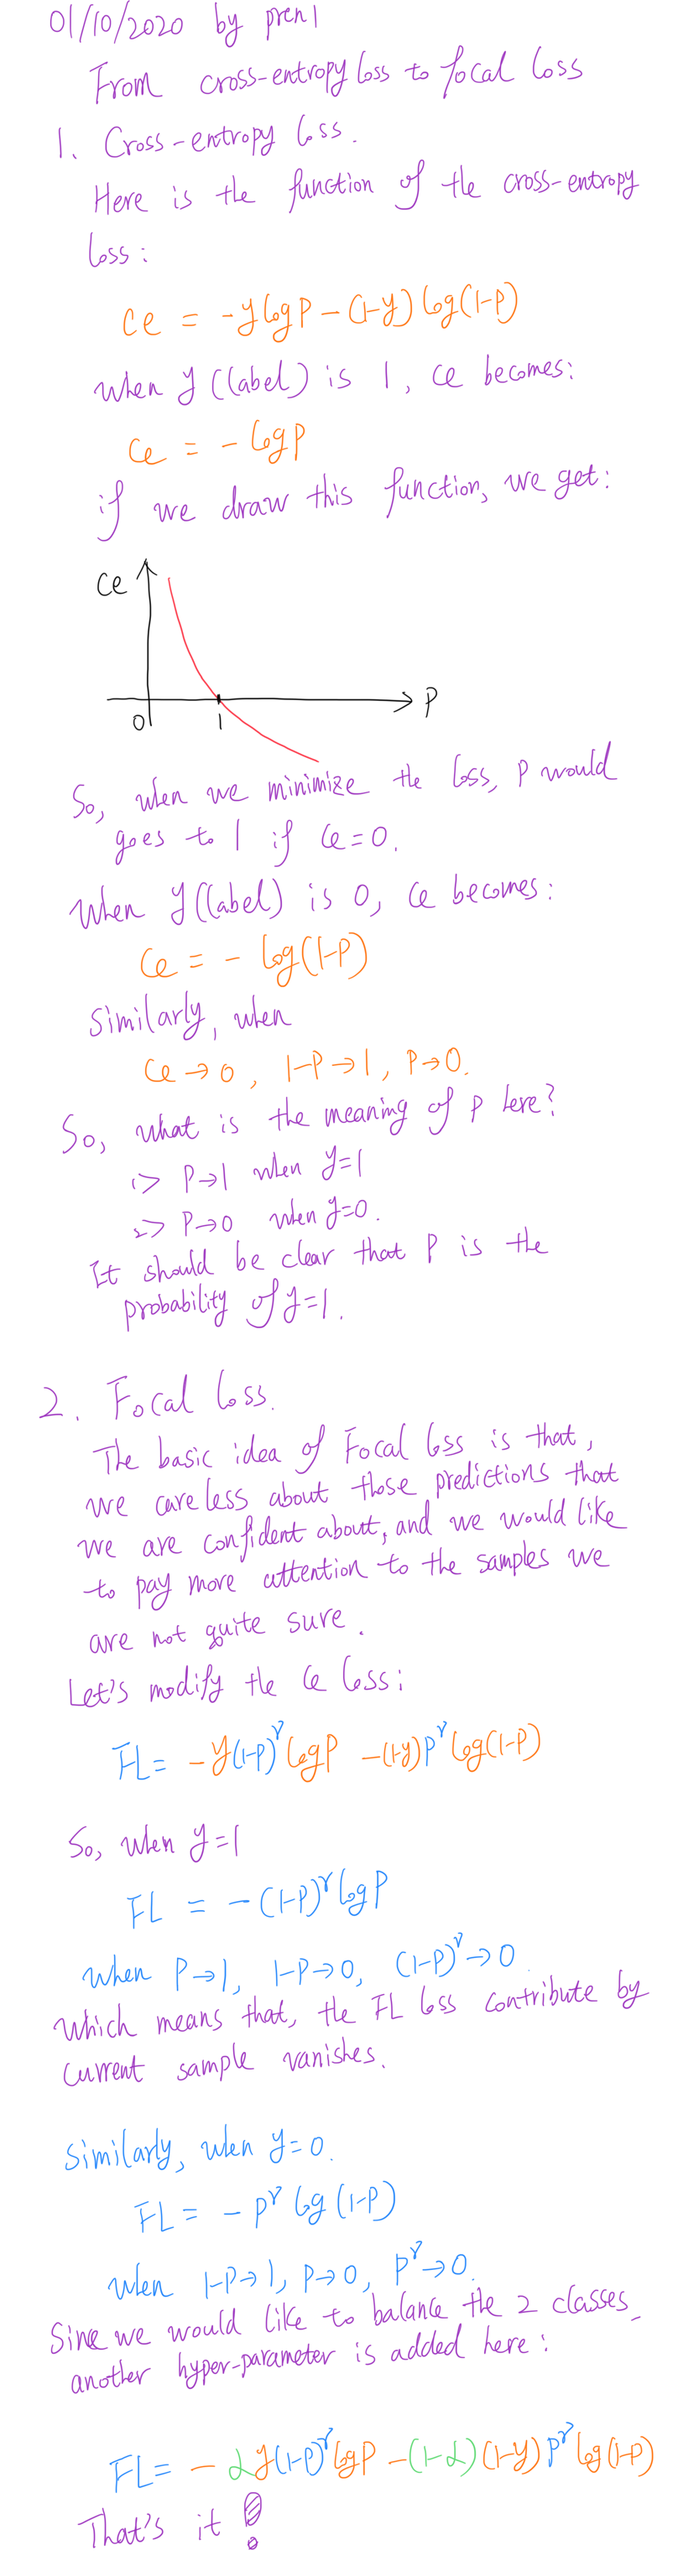 01/10/2020 by pren1
From cross-entropy loss to focal loss
1. Cross-entropy loss.
Here is the function of the cross-entropy
loss:
Ce = -ylogP-(1-y)log(1-P)
when y(label) is 1, Ce becomes:
Ce = -logP
if we draw this function, we get:
Ce
P
0
1
So, when we minimize the loss, P would
goes to 1 if Ce=0.
When y(label) is 0, Ce becomes:
Ce = - log(1-P)
Similarly, when
Ce→0, 1-P→1, P→0.
So, what is the meaning of P here?
1> P→1 when y=1
2> P→0 when y=0.
It should be clear that P is the
probability of y=1.
2. Focal loss.
The basic idea of Focal loss is that,
we care less about those predictions that
we are confident about, and we would like
to pay more attention to the samples we
are not quite sure.
Let's modify the Ce loss:
FL= -y(1-P)^γ logP -(1-y)P^γ log(1-P)
So, when y=1
FL = -(1-P)^γ logP
when P→1, 1-P→0, (1-P)^γ→0
Which means that, the FL loss contribute by
current sample vanishes.
Similarly, when y=0.
FL= - P^γ log(1-P)
when 1-P→1, P→0, P^γ→0.
Sine we would like to balance the 2 classes,
another hyper-parameter is added here:
FL= - αy(1-P)^γ logP -(1-α)(1-y)P^γ log(1-P)
That's it!